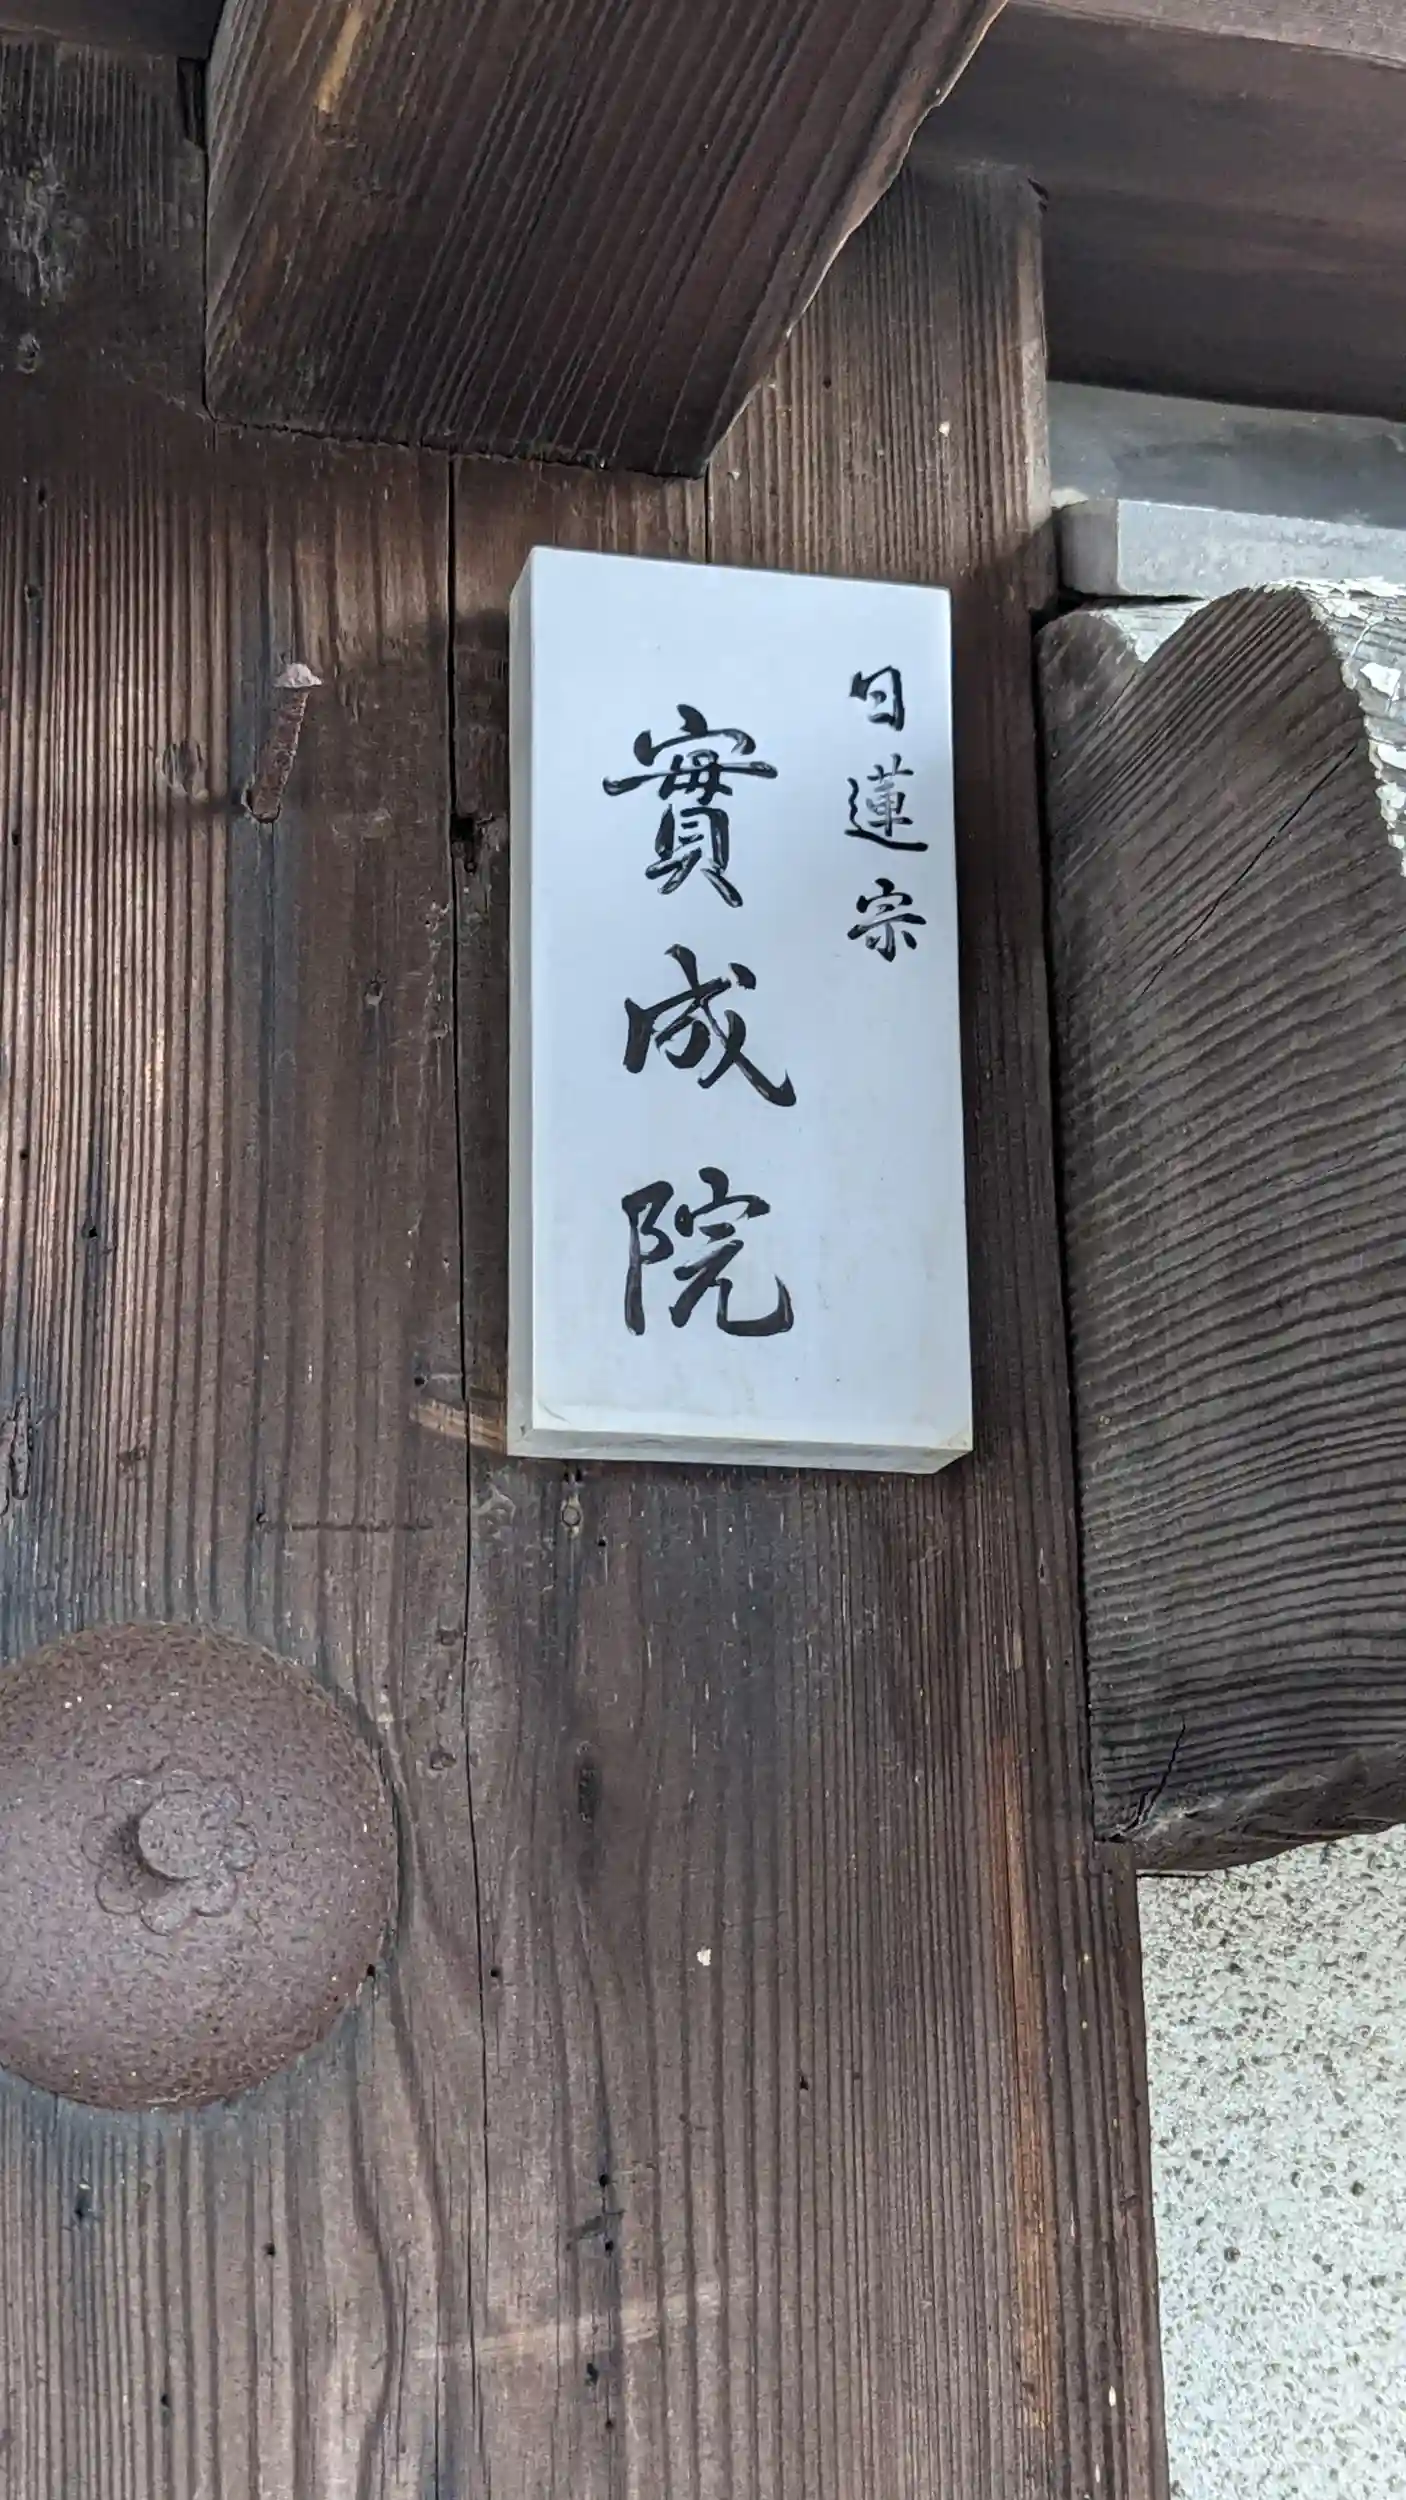 日蓮宗
實成院